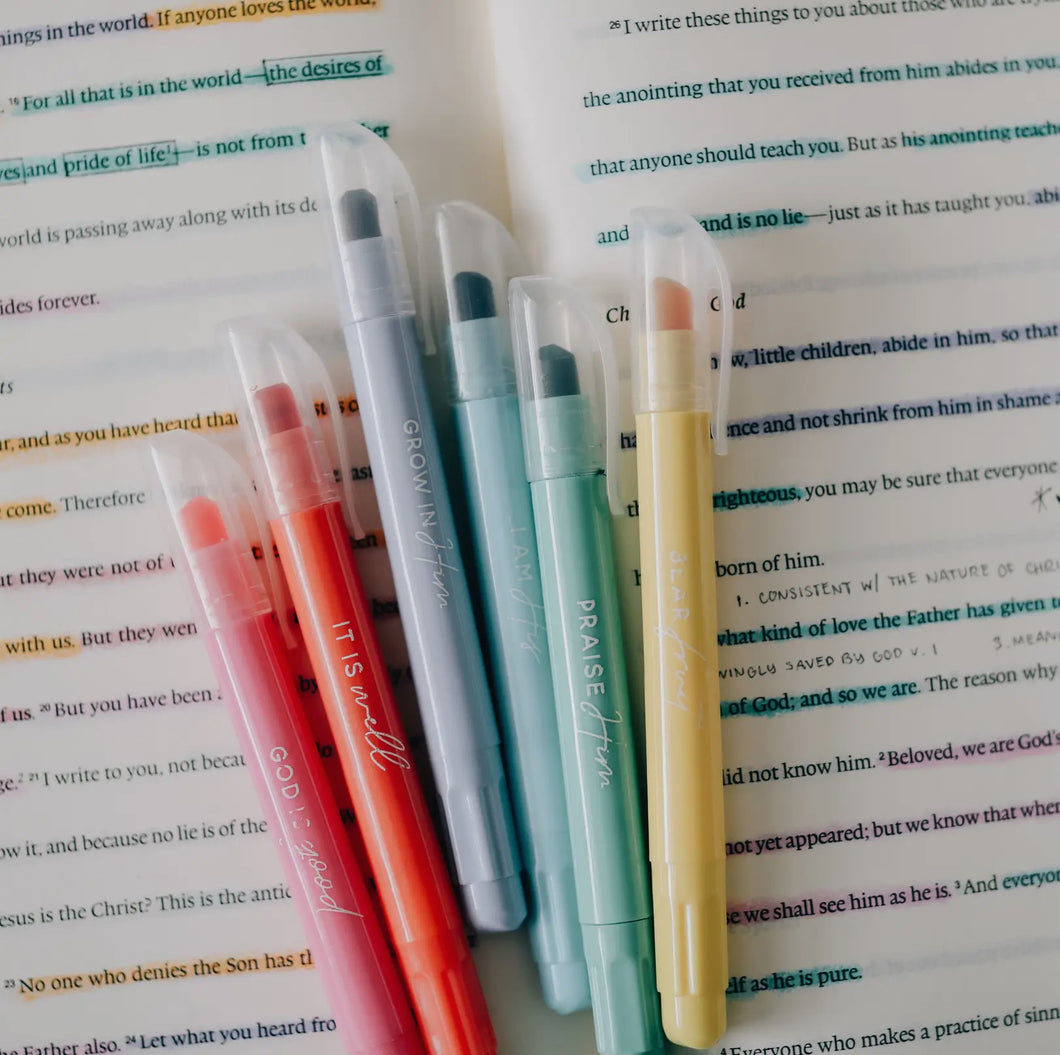 ings in the world. If anyone loves the world,
. 16 For all that is in the world—the desires of
yes and pride of life1—is not from t
world is passing away along with its de
ides forever.
ts
r, and as you have heard tha
come. Therefore
t they were not of
with us. But they wen
f us. 20 But you have been
ge.2 21 I write to you, not becau
ow it, and because no lie is of the
esus is the Christ? This is the antic
23 No one who denies the Son has th
e Father also. 24 Let what you heard fro
26 I write these things to you about those who are
the anointing that you received from him abides in you.
that anyone should teach you. But as his anointing teach
and and is no lie—just as it has taught you, abi
Ch God
w, little children, abide in him, so that
ha ence and not shrink from him in shame
righteous, you may be sure that everyone
born of him.
1. CONSISTENT W/ THE NATURE OF CHRI
what kind of love the Father has given to
WINGLY SAVED BY GOD V. 1 3. MEAN
of God; and so we are. The reason why
did not know him. 2 Beloved, we are God's
not yet appeared; but we know that when
se we shall see him as he is. 3 And everyon
elf as he is pure.
4 Everyone who makes a practice of sinn
GOD IS good
IT IS well
GROW IN Him
I AM His
PRAISE Him